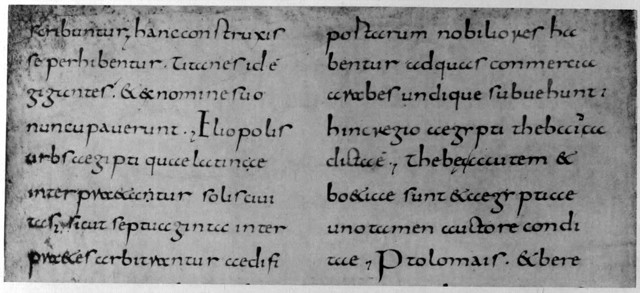 scribuntur, hanc construxis
se perhibentur. titanes id ē
gigantes. & & nomine suo
nuncupauerunt., Eliopolis
urbs aegipti quae latinae
interpraetantur solis ciui
tas, sicut septuaginta inter
praetes arbitrantur aedifi
postarum nobiliores ha
bentur ad quas conmercia
arabes undique subuehunt;
hinc regio aegypti thebaica
dictae, thebae autem &
boeticae sunt & aegyptiae
uno tamen auctore condi
tae, Ptolomais. & bere